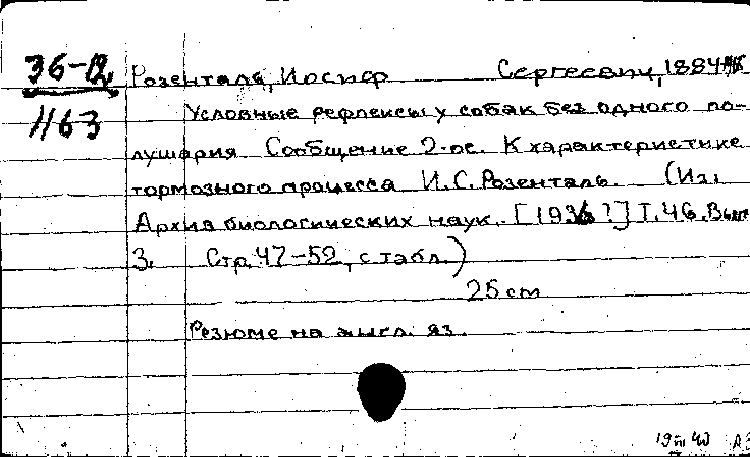 36-12 Розенталь, Иосиф Сергеевич, 1884-
1163 Условные рефлексы у собак без одного по-
лушария Сообщение 2-ое. К характеристике
тормозного процесса И.С. Розенталь. (Из:
Архив биологических наук. [1936?] Т. 46. Вып
3. Стр. 47-52, с табл.)
25 cm
Резюме на англ. яз.
19 III 40